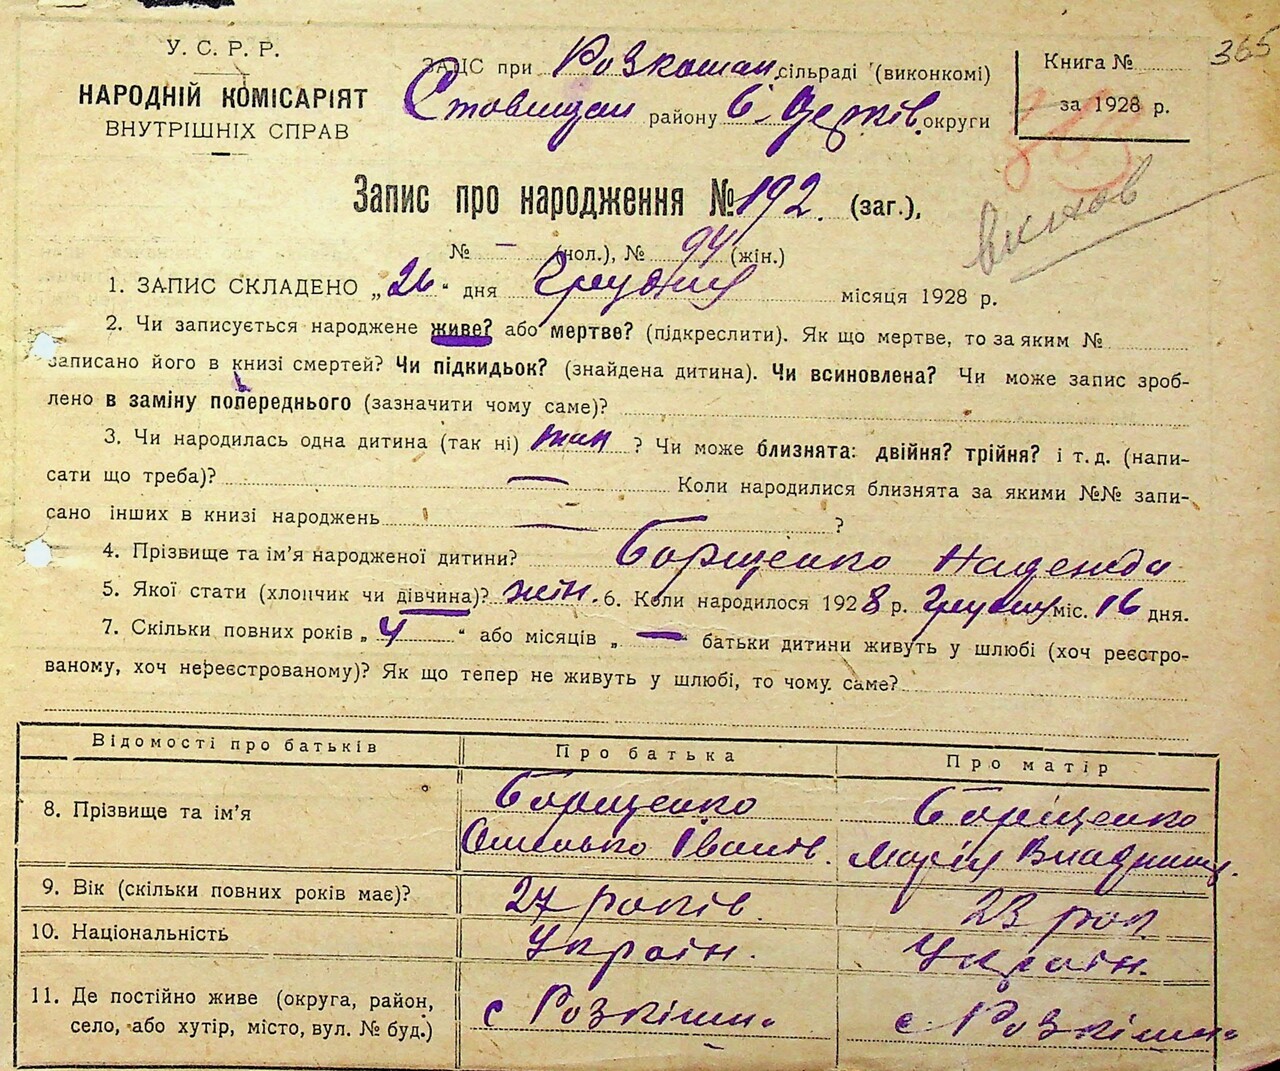 365
У. С. Р. Р.
НАРОДНІЙ КОМІСАРІЯТ
ВНУТРІШНІХ СПРАВ
ЗАГС при Розкошан. сільраді (виконкомі)
Ставищан району Б-Церків. округи
Книга №
за 1928 р.
Запис про народження № 192. (заг.),
№ — (чол.), № 94 (жін.)
1. ЗАПИС СКЛАДЕНО „26" дня Грудня місяця 1928 р.
2. Чи записується народжене живе? або мертве? (підкреслити). Як що мертве, то за яким №
записано його в книзі смертей? Чи підкидьок? (знайдена дитина). Чи всиновлена? Чи може запис зроб-
лено в заміну попереднього (зазначити чому саме)?
3. Чи народилась одна дитина (так ні) так ? Чи може близнята: двійня? трійня? і т. д. (напи-
сати що треба)? — Коли народилися близнята за якими №№ запи-
сано інших в книзі народжень — ?
4. Прізвище та ім'я народженої дитини? Борщенко Надежда
5. Якої стати (хлопчик чи дівчина)? жін. 6. Коли народилося 1928 р. Грудня міс. 16 дня.
7. Скільки повних років „4" або місяців „—" батьки дитини живуть у шлюбі (хоч реєстро-
ваному, хоч нереєстрованому)? Як що тепер не живуть у шлюбі, то чому саме?
Відомості про батьків Про батька Про матір
8. Прізвище та ім'я Борщенко Борщенко
Іванів. Марія
9. Вік (скільки повних років має)? 27 років. 23 рок.
10. Національність Україн. Україн.
11. Де постійно живе (округа, район,
село, або хутір, місто, вул. № буд.) с Розкішна с Розкішна